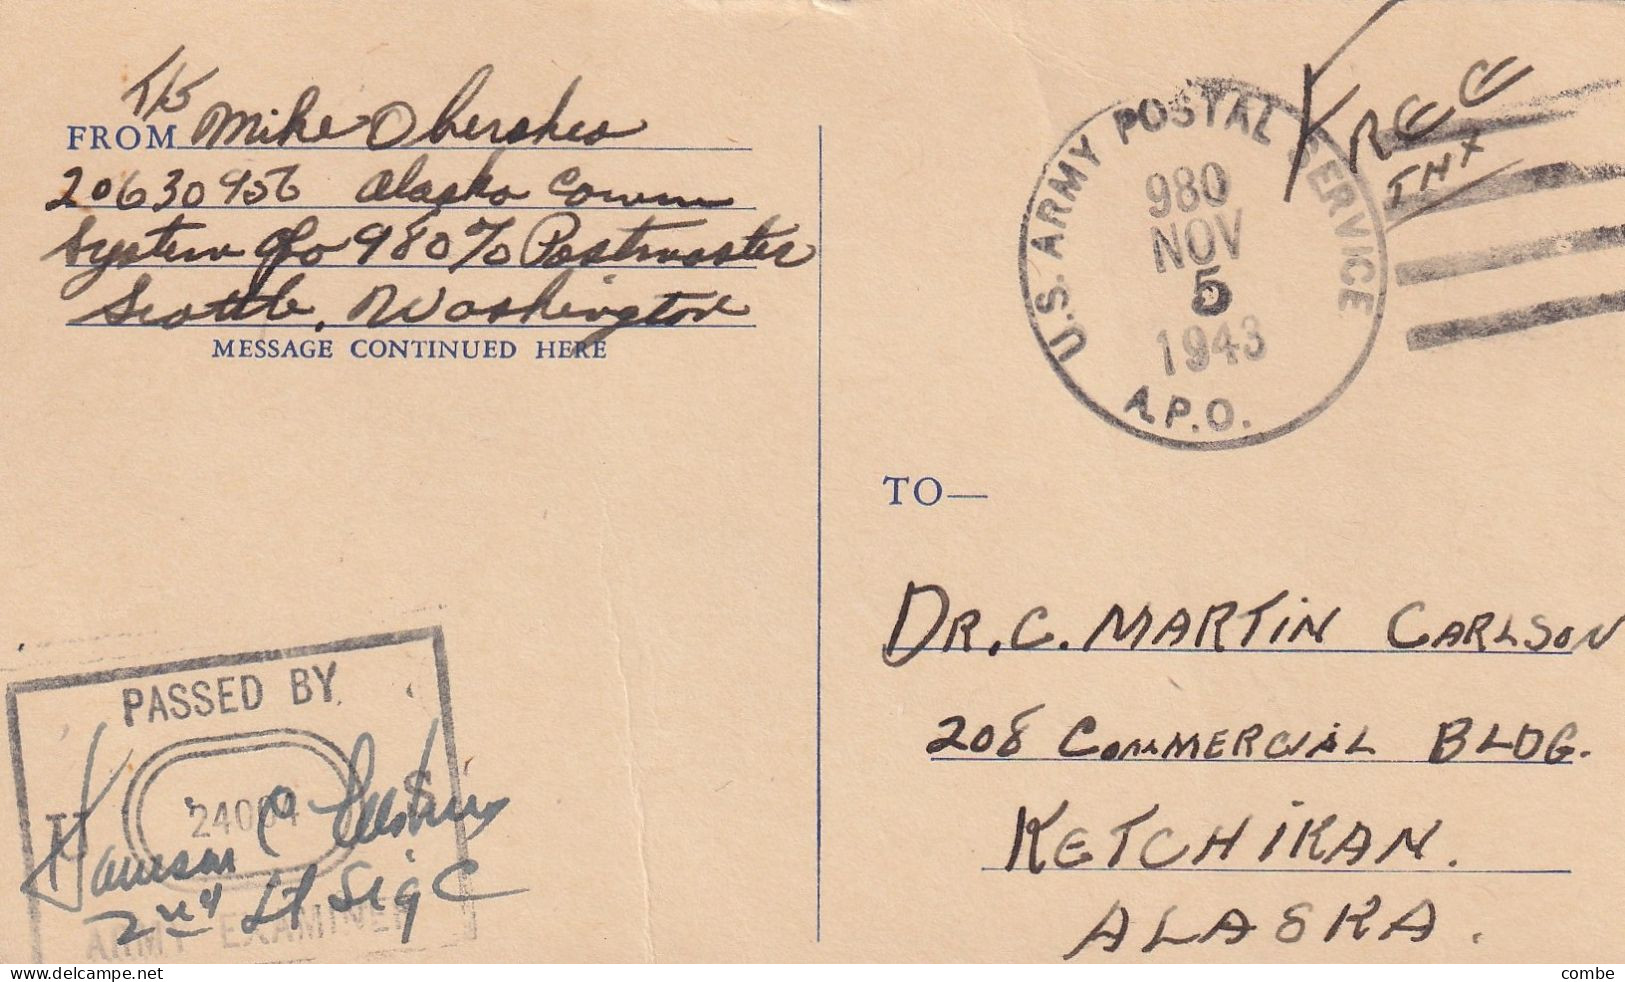 T/5
FROM Mike Obershes
20630956 Alaska Comm
System APO 980 % Postmaster
Seattle, Washington
MESSAGE CONTINUED HERE
U.S. ARMY POSTAL SERVICE
980
NOV
5
1943
A.P.O.
FREE
TO—
DR. C. MARTIN CARLSON
208 COMMERCIAL BLDG.
KETCHIKAN.
ALASKA.
PASSED BY
U S
C
2nd Lt Sig C
ARMY EXAMINER
delcampe.net
combe